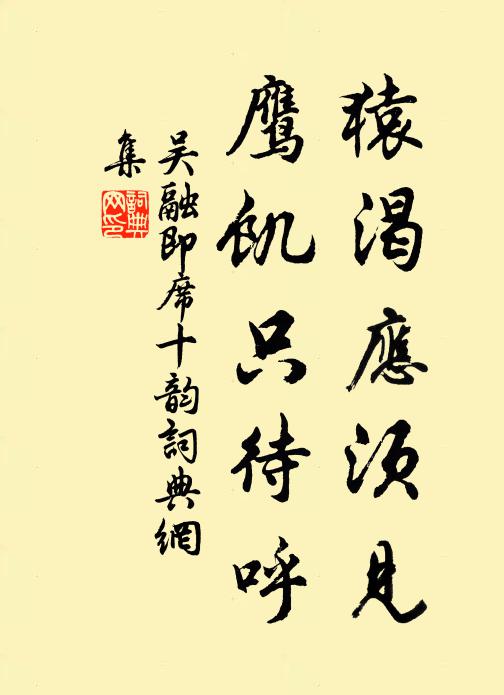 猿渴應須見
鷹飢只待呼
吴融即席十韵詞典網
集
詞典
网印